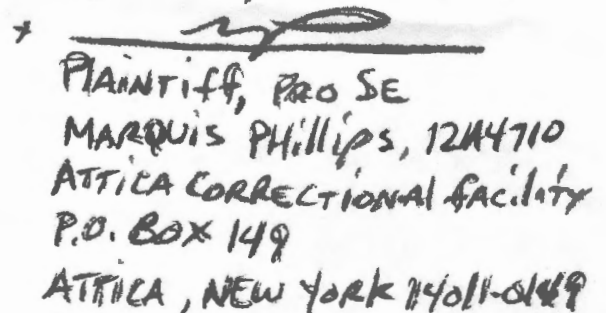 Plaintiff, PRO SE
MARQUIS PHillips, 12A4710
ATTICA CORRECTIONAl fAcility
P.O. BOX 149
ATTICA, NEW YORK 14011-0149